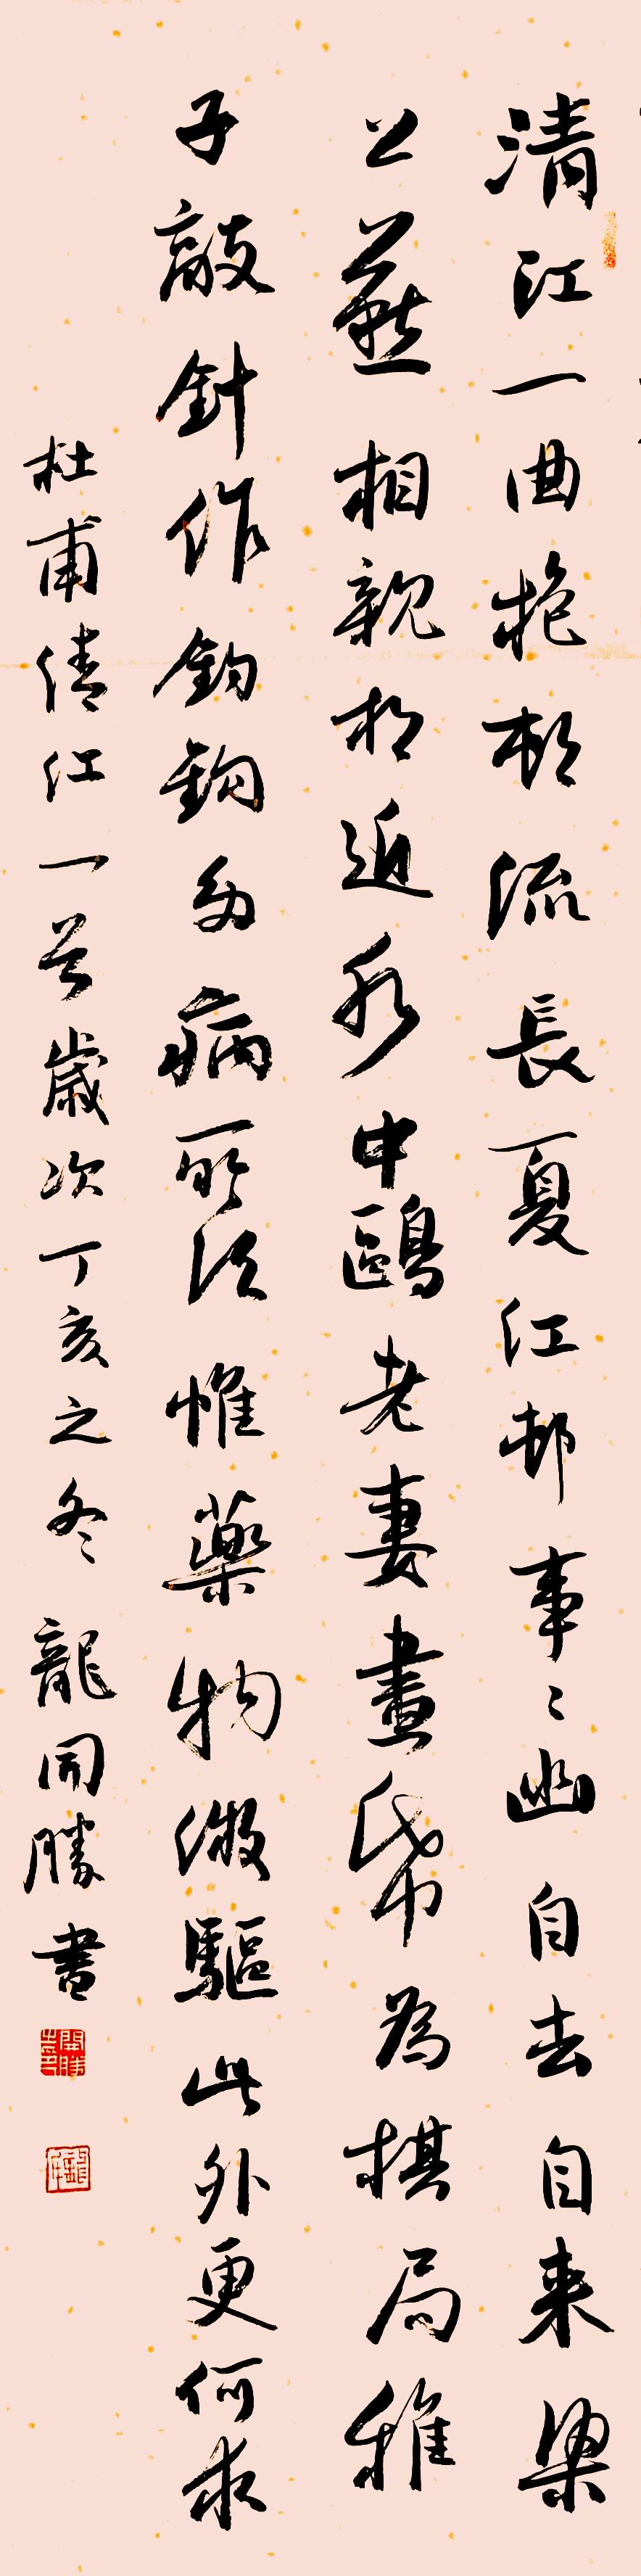 清江一曲抱邨流長夏江邨事〻幽自去自来梁
上燕相親相近水中鷗老妻畫帋為棋局稚
子敲針作釣鈎多病所須惟藥物微驅此外更何求
杜甫清江一首歲次丁亥之冬龍開勝書